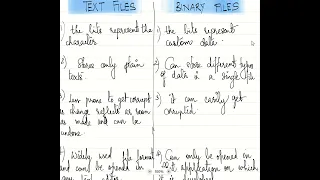 TEXT FILES
BINARY FILES
1) the bits represent the
character.
1) the bits represent
custom data
2) Stores only plain
texts
2) Can store different types
of data in a single file
3) Less prone to get corrupt
as change reflects as soon
as made and can be
undone
3) it can easily get
corrupted
4) Widely used file format
and can be opened in
4) Can only be opened on
application on which